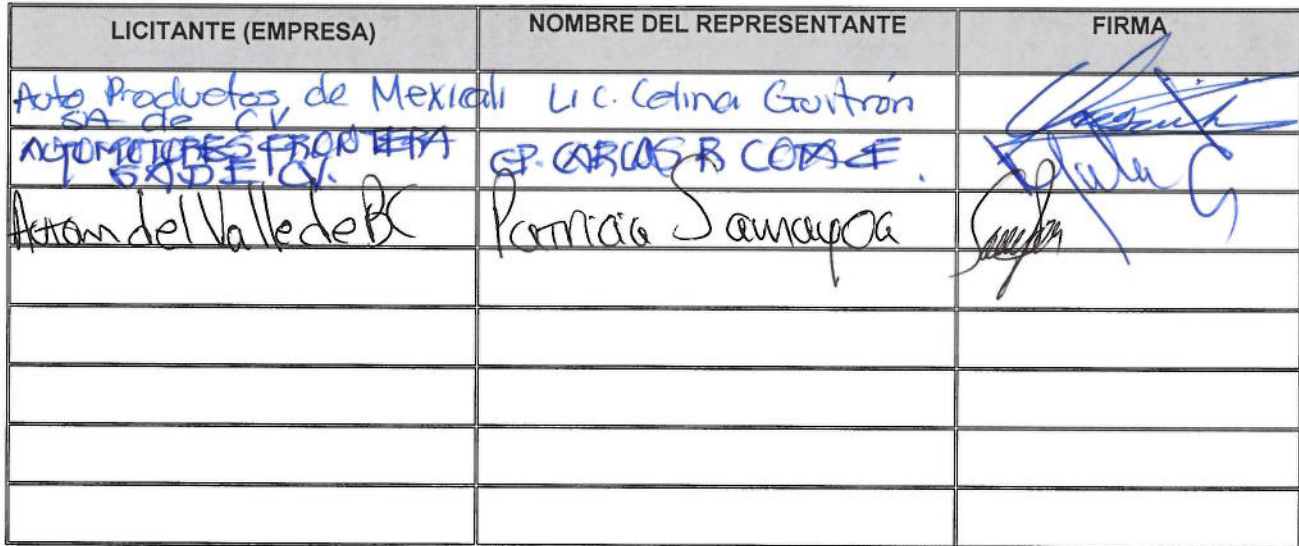 LICITANTE (EMPRESA) NOMBRE DEL REPRESENTANTE FIRMA
Auto Productos de Mexicali Lic. Celina Guitrón
SA de CV
AUTOMOTORES FRONTERA CP. CARLOS R
SA DE CV.
del Valle de BC Patricia Samayoa